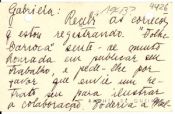 Gabriela:
Recebi as correções
q estou registrando. "Folha
Carioca" sente-se muito
honrada em publicar seu
trabalho, e pede-lhe por
favor que envie um re-
trato seu para ilustrar
a colaboração. Poderia